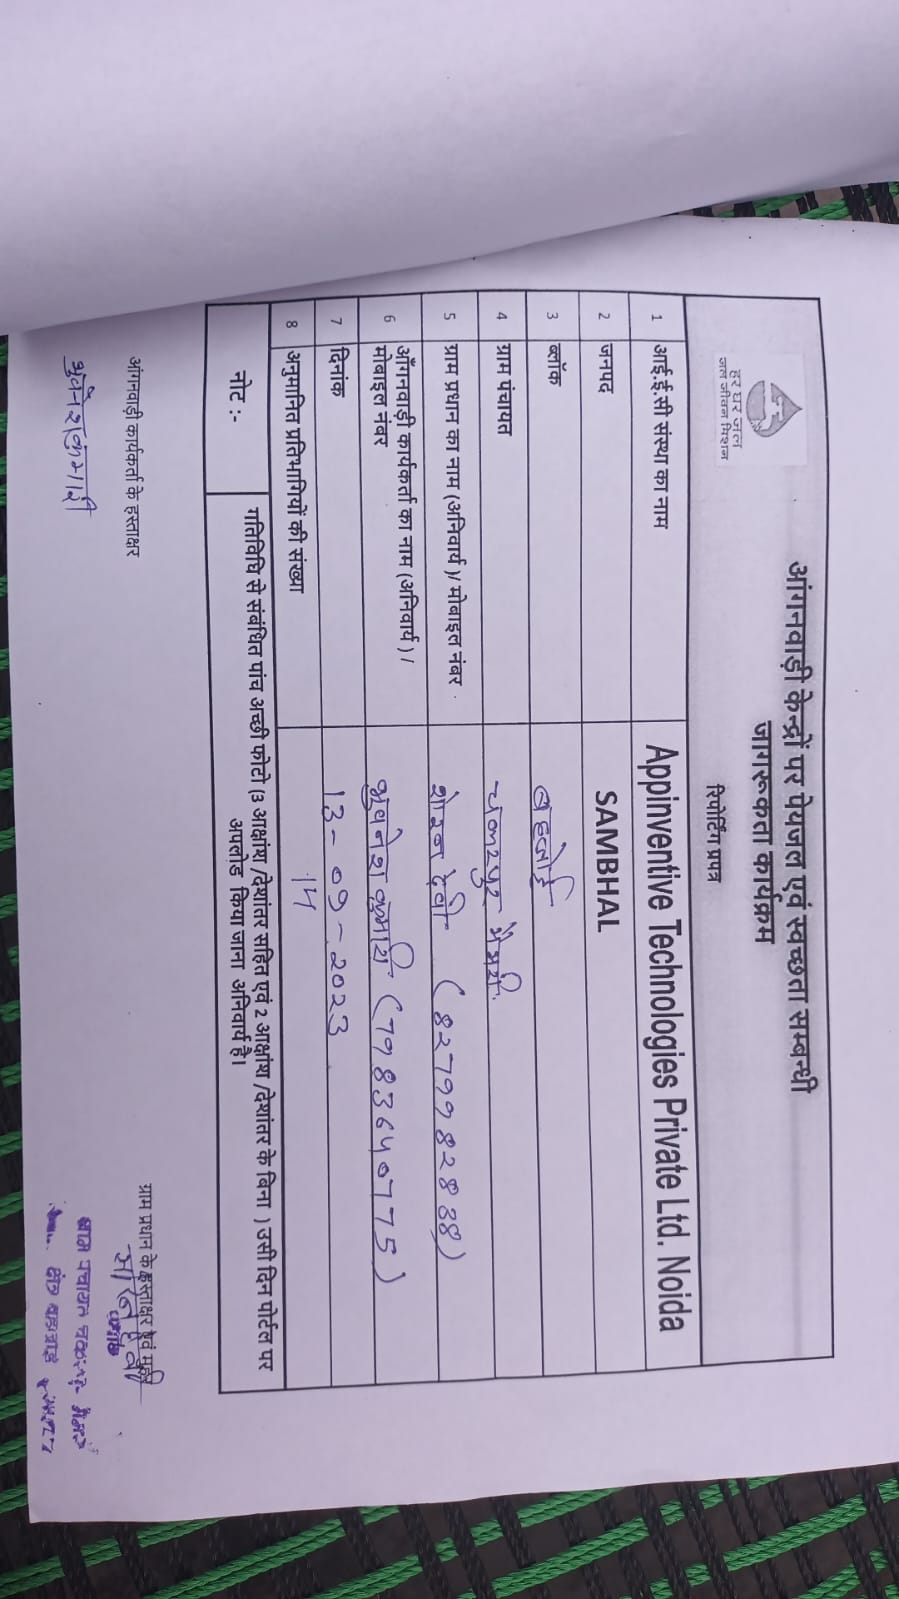 आंगनवाड़ी केन्द्रों पर पेयजल एवं स्वच्छता सम्बन्धी
जागरूकता कार्यक्रम
रिपोर्टिंग प्रपत्र
हर घर जल
जल जीवन मिशन
1 आई.ई.सी संस्था का नाम Appinventive Technologies Private Ltd. Noida
2 जनपद SAMBHAL
3 ब्लॉक बहजोई
4 ग्राम पंचायत
5 ग्राम प्रधान का नाम (अनिवार्य )/ मोबाइल नंबर देवी (8279982838)
6 आँगनवाड़ी कार्यकर्ता का नाम (अनिवार्य ) / भुवनेश कुमारी (7983640775)
मोबाइल नंबर
7 दिनांक 13-09-2023
8 अनुमानित प्रतिभागियों की संख्या 14
नोट :- गतिविधि से संबंधित पांच अच्छी फोटो (3 आक्षांश /देशांतर सहित एवं 2 आक्षांश /देशांतर के बिना ) उसी दिन पोर्टल पर
अपलोड किया जाना अनिवार्य है।
आंगनवाड़ी कार्यकर्ता के हस्ताक्षर
ग्राम प्रधान के हस्ताक्षर एवं मुहर